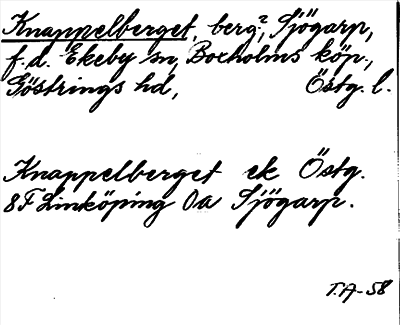 Knappelberget, berg?, Sjögarp,
f.d. Ekeby sn, Boxholms köp.,
Göstrings hd, Östg. l.
Knappelberget ek Östg.
8F Linköping 0a Sjögarp.
T.A-58